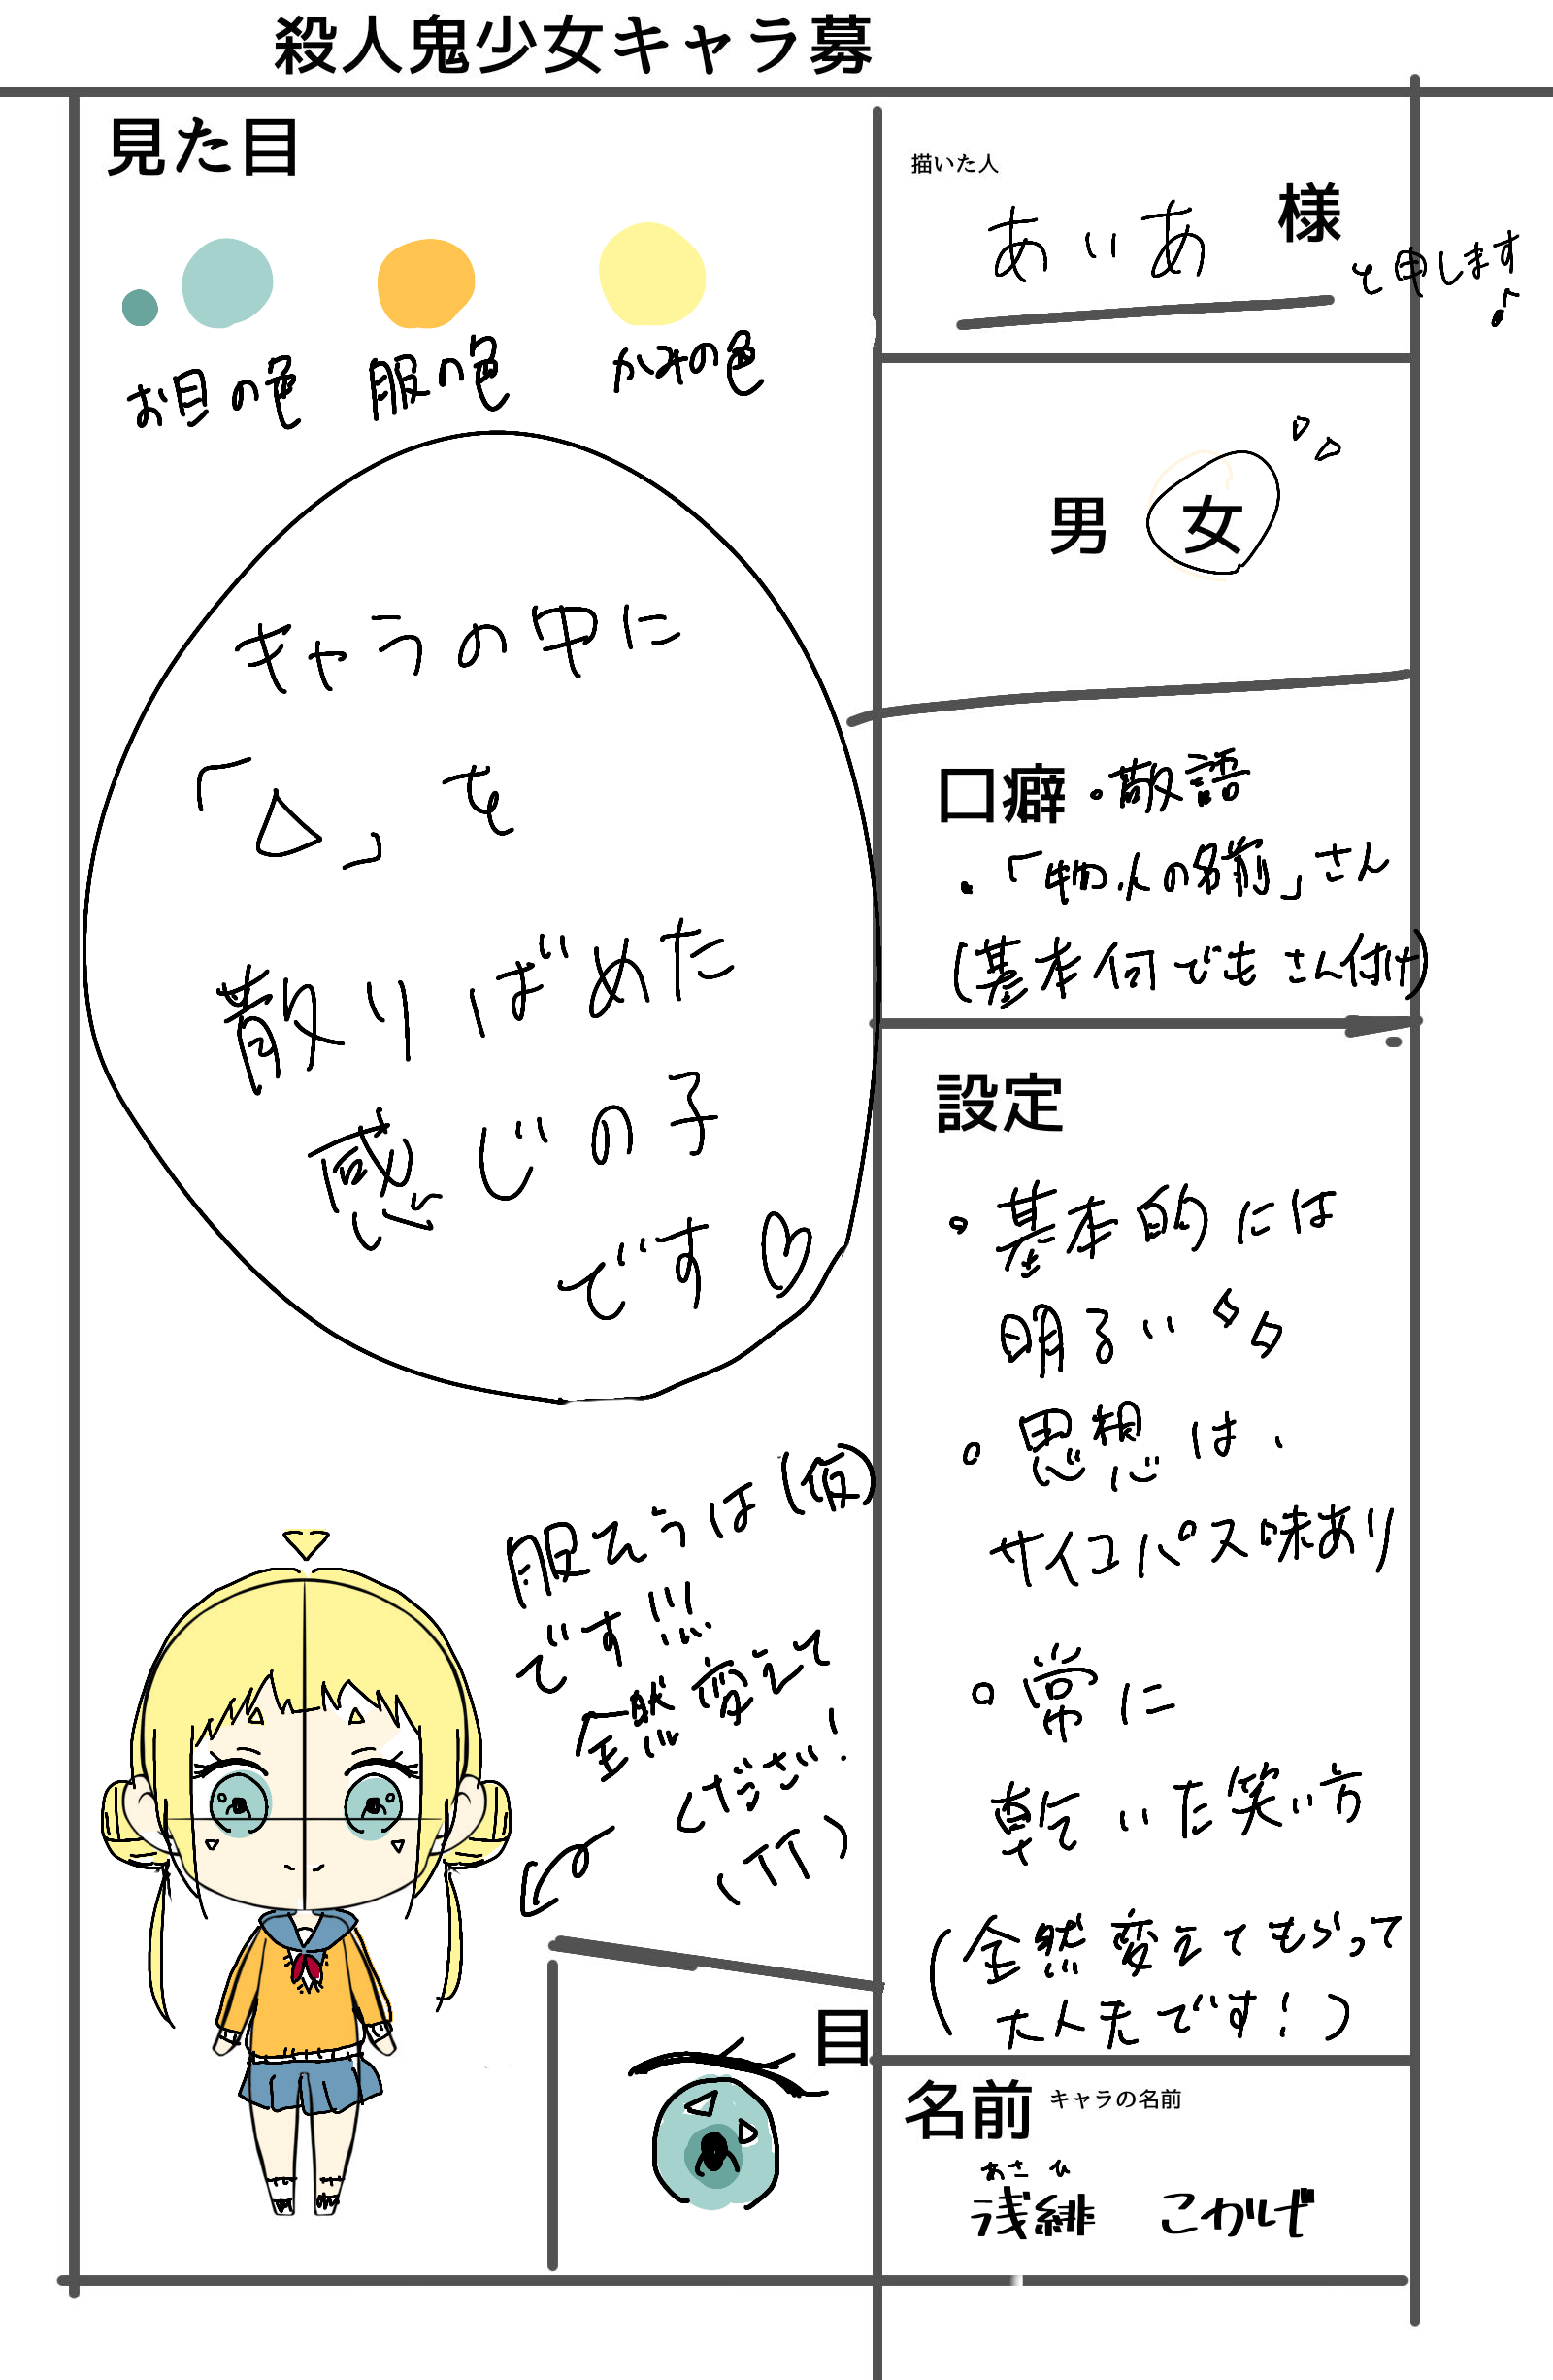 殺人鬼少女キャラ募
見た目
お目の色
服の色
かみの色
キャラの中に
「△」を
散りばめた
感じの子
です♡
服そうは(仮)
です!!!
全然変えて
ください!
(TT)
目
描いた人
あいあ 様
と申します♪
男 女
口癖 ・敬語
・「物、人の名前」さん
(基本何でもさん付け)
設定
・基本的には
明るい
・思想は、
サイコパス味あり
・常に
乾いた笑い方
(全然変えてもらって
大丈夫です!)
名前 キャラの名前
あさひ
浅緋 こかげ